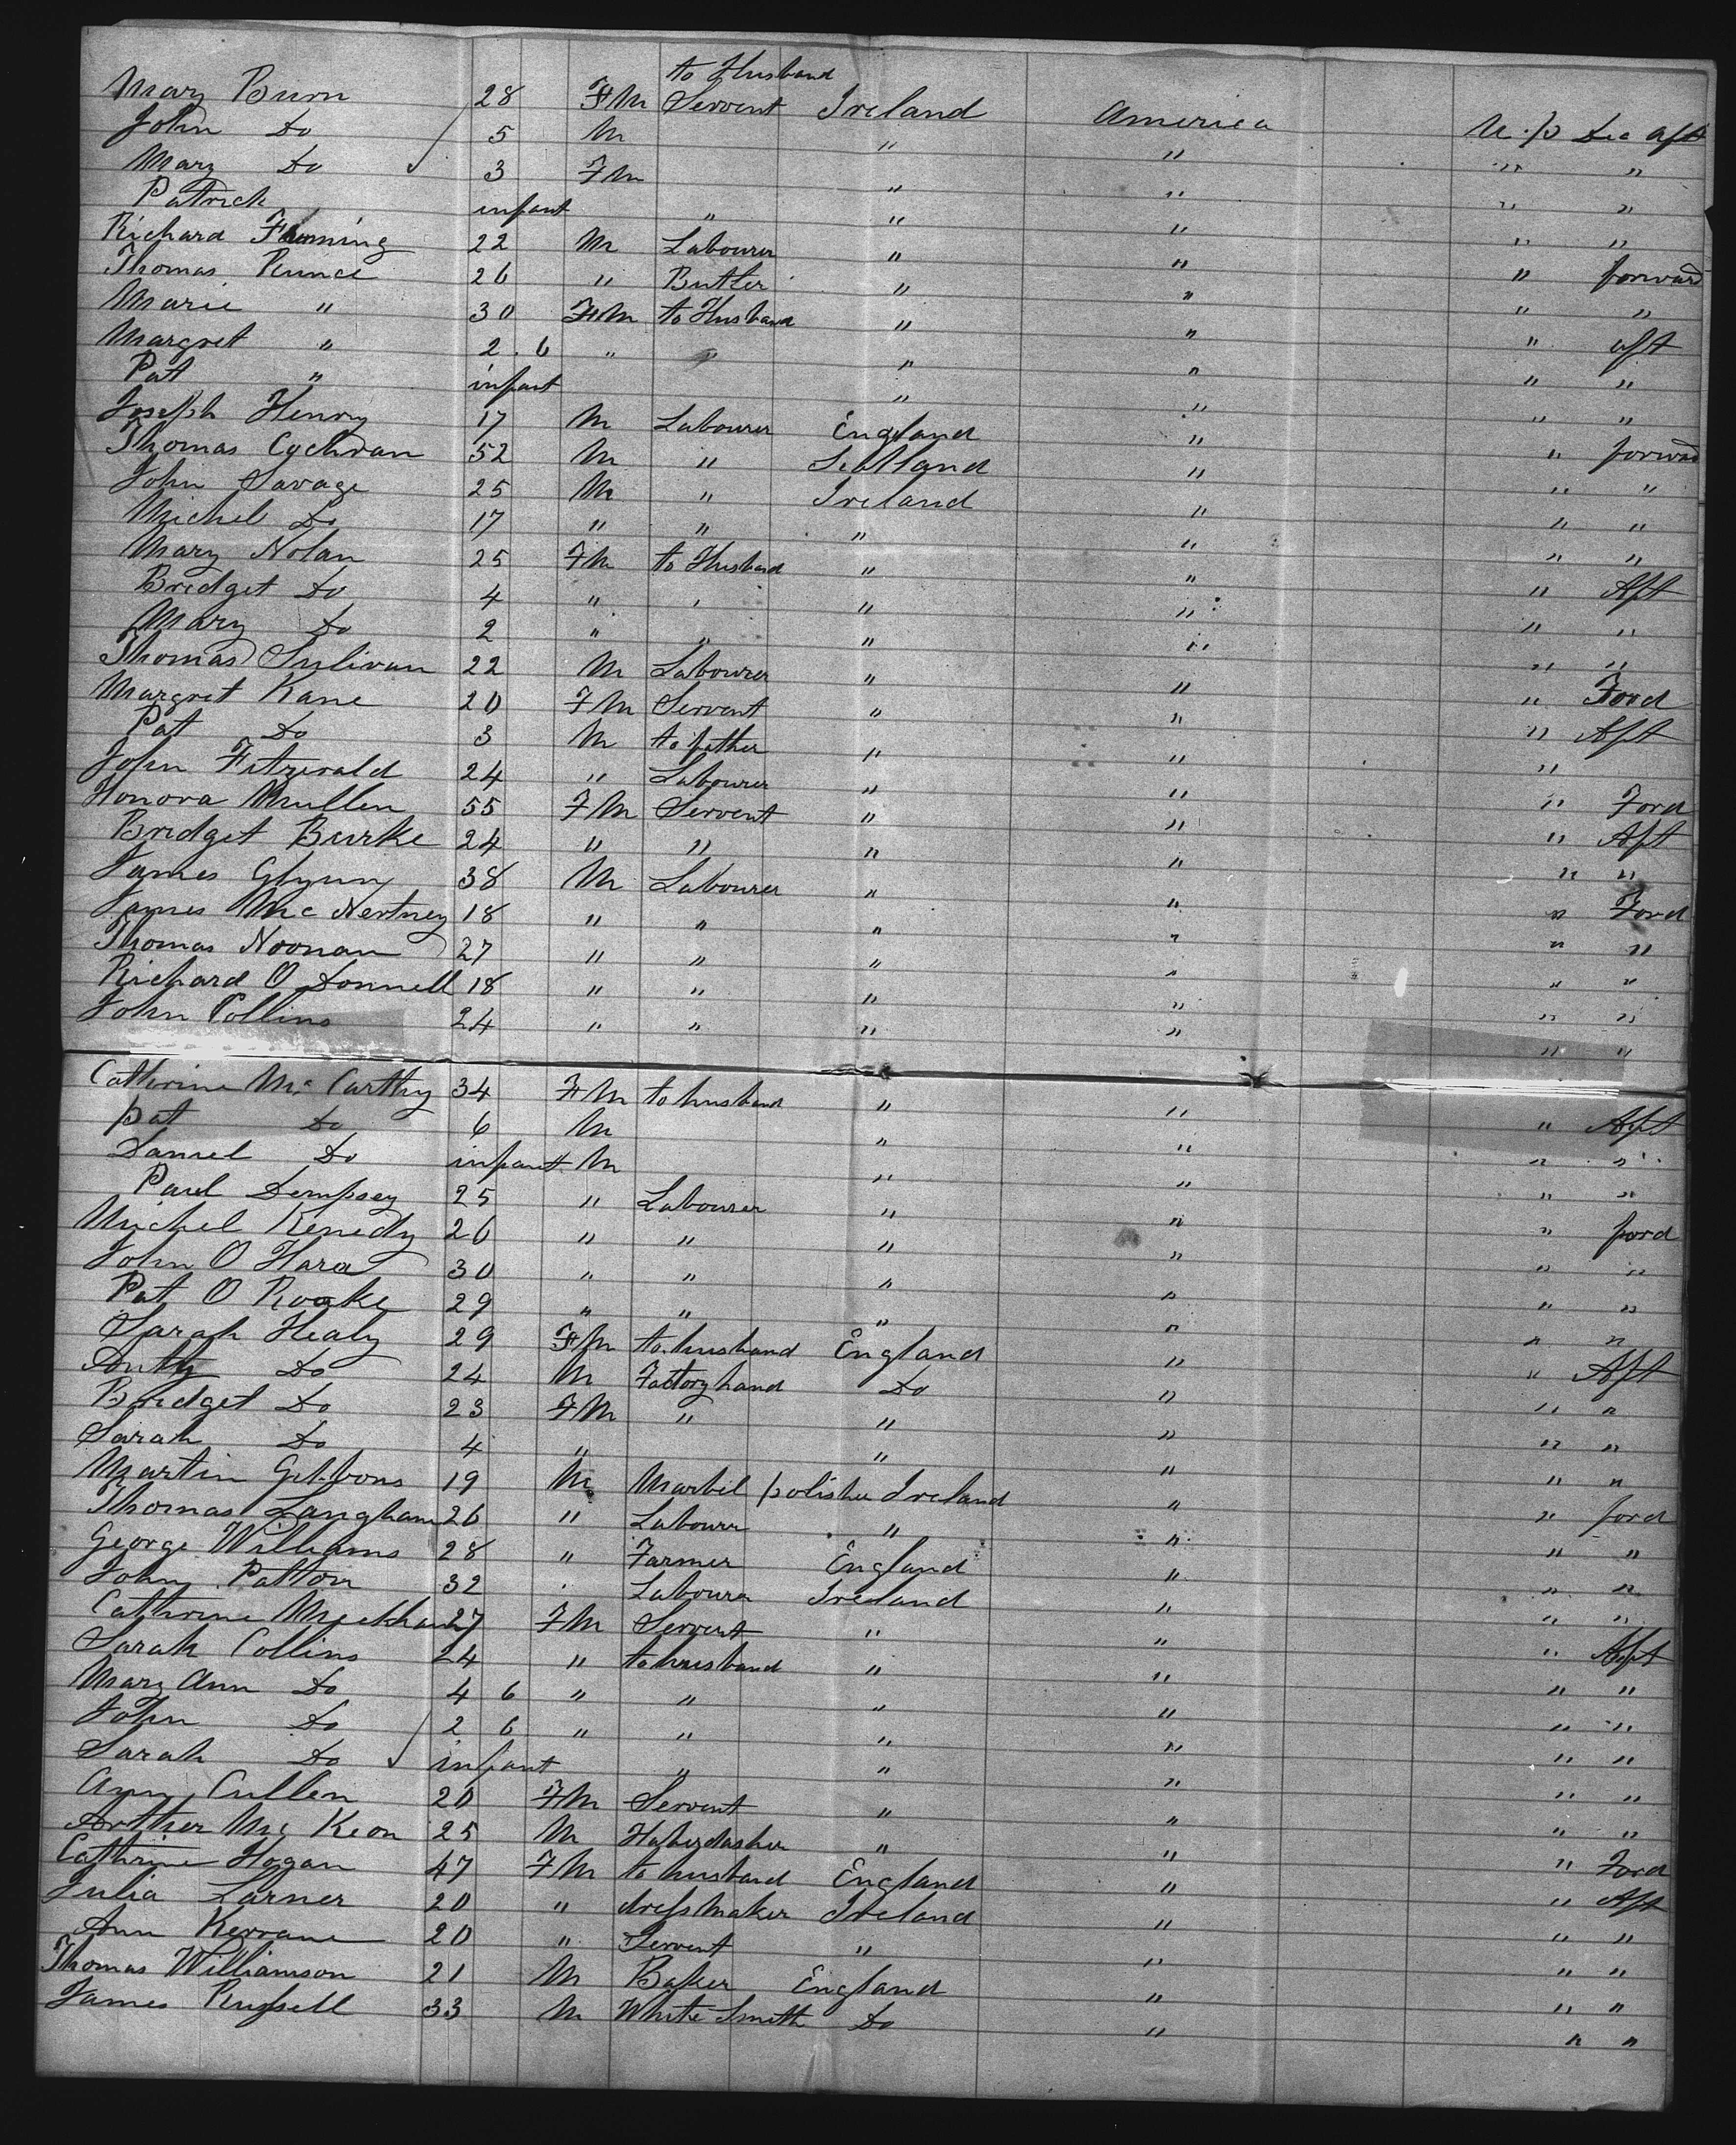 to Husband
Mary Burn 28 FM Servent Ireland America U.p Dec Aft
John Do 5 M " " " "
Mary Do 3 FM " " " "
Patrick infant " " " " "
Richard Fleming 22 M Labourer " " " forward
Thomas Runce 26 " Butler " " " "
Marie " 30 FM to Husband " " " aft
Margret " 2.6 " " " " " "
Pat " infant " " " "
Joseph Henry 17 M Labourer England " " forward
Thomas Cochran 52 M " Scotland " " "
John Savage 25 M " Ireland " " "
Michel Do 17 " " " " " "
Mary Nolan 25 FM to Husband " " " Aft
Bridget Do 4 " " " " " "
Mary Do 2 " " " " " "
Thomas Sulivan 22 M Labourer " " " Ford
Margret Kane 20 FM Servent " " " Aft
Pat Do 3 M to father " " "
John Fitzerald 24 " Labourer " " " Ford
Honora Mullen 55 FM Servent " " " Aft
Bridget Burke 24 " " " " " "
James Glynn 38 M Labourer " " " Ford
James McNertney 18 " " " " " "
Thomas Noonan 27 " " " " " "
Richard O Donnell 18 " " " " " "
John Collins 24 " " " " " "
Catherine McCarthy 34 FM to husband " " " Aft
Pat Do 6 M " " " "
Daniel Do infant M " " " "
Paul Dempsey 25 " Labourer " " " ford
Michel Kenedy 26 " " " " " "
John O Hara 30 " " " " " "
Pat O Roake 29 " " " " " "
Sarah Healy 29 FM to husband England " " Aft
Anty Do 24 M Factory hand Do " " "
Bridget Do 23 FM " " " " "
Sarah Do 4 " " " " "
Martin Gibbons 19 M Marbel polisher Ireland " " ford
Thomas Langham 26 " Labourr " " " "
George Williams 28 " Farmer England " " "
John Patton 32 " Labourer Ireland " " "
Cathrine Meekhan 27 FM Servent " " " Aft
Sarah Collins 24 " to husband " " " "
Mary Ann Do 4 6 " " " " " "
John Do 2 6 " " " " " "
Sarah Do infant " " " " "
Ann Cullen 20 FM Servent " " " "
Arther McKeon 25 M Haberdasher " " " Ford
Cathrine Hogan 47 FM to husband England " " Aft
Julia Larner 20 " dressmaker Ireland " " "
Ann Kerrane 20 " Servent " " " "
Thomas Williamson 21 M Baker England " " "
James Russell 33 M White Smith Do " " "